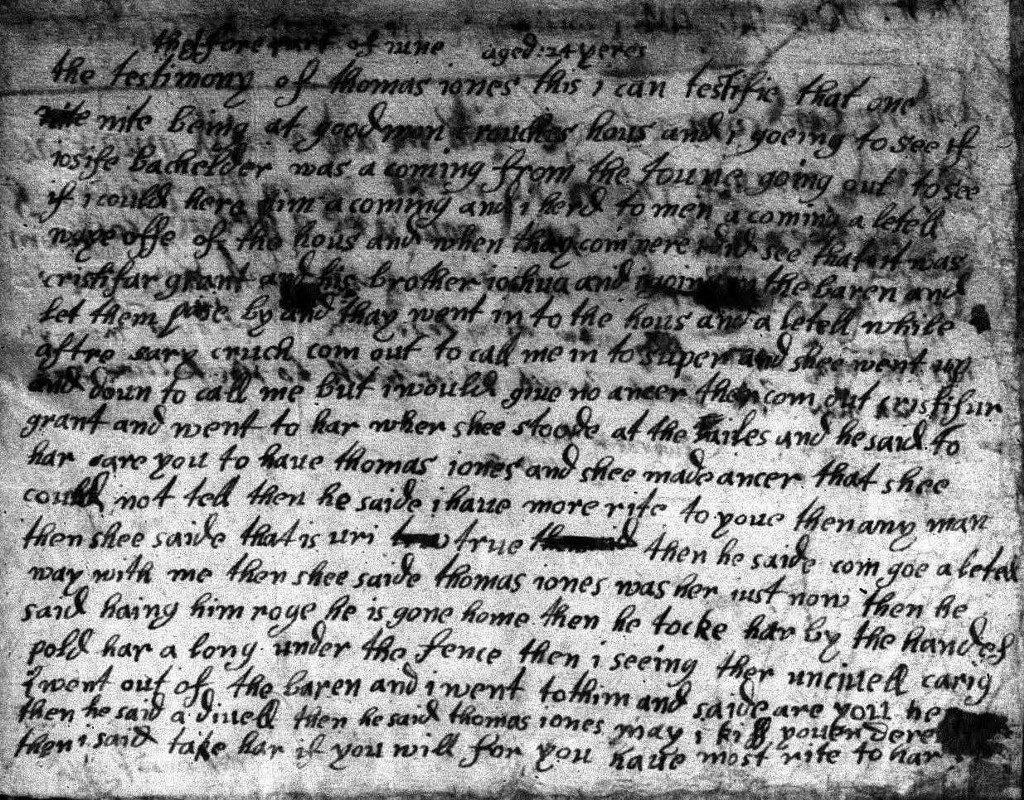 the fore part of iune aged:24 yeres
the testimony of thomas iones this i can testifie that one
nite being at goodman crouches hous and i goeing to see if
iosife bachelder was a coming from the toune going out to see
if i could here him a coming and i herd to men a coming a letell
waye offe of the hous and when thay com nere i did see that it was
cristifar grant and his brother ioshua and i goin in the baren and
let them pase by and thay went in to the hous and a letell while
aftre sary cruch com out to call me in to super and shee went up
and doun to call me but i would give no ancer then com out cristifur
grant and went to har wher shee stoode at the railes and he said to
har are you to have thomas iones and shee made ancer that shee
could not tell then he saide i have more rite to youe then any man
then shee saide that is uri true then he saide com goe a letell
way with me then shee saide thomas iones was her iust now then he
said haing him roge he is gone home then he tocke har by the handes
pold har a long under the fence then i seeing ther uncivell carig
i went out of the baren and i went to him and saide are you he
then he said a divell then he said thomas iones may i kis youer dere
then i said take har if you will for you have most rite to har